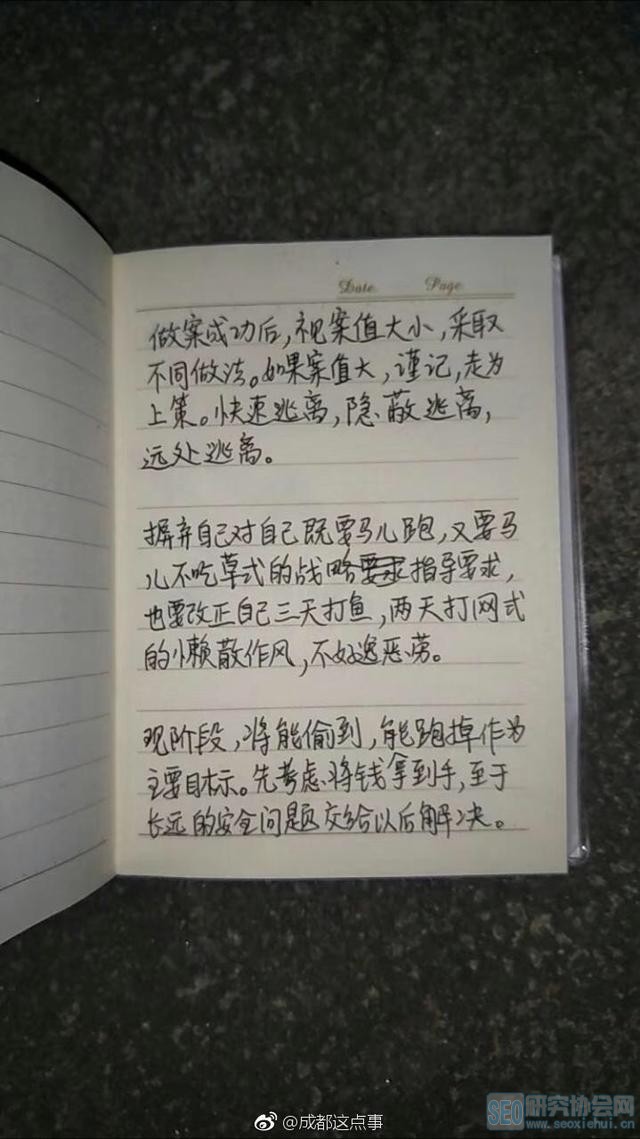 Date Page
做案成功后，视案值大小，采取
不同做法。如果案值大，谨记，走为
上策。快速逃离，隐蔽逃离，
远处逃离。
摒弃自己对自己既要马儿跑，又要马
儿不吃草式的战略要求指导要求，
也要改正自己三天打鱼，两天打网式
的懒散作风，不好逸恶劳。
现阶段，将能偷到，能跑掉作为
主要目标。先考虑将钱拿到手，至于
长远的安全问题交给以后解决。
SEO研究协会网
www.seoxiehui.cn
@成都这点事